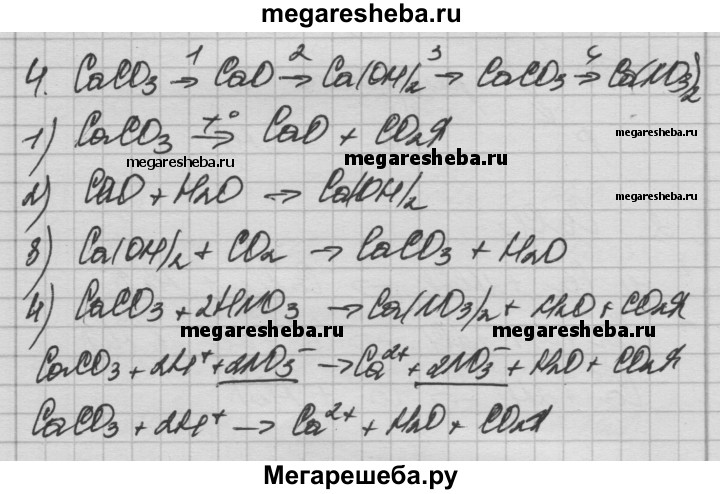 megaresheba.ru
4. CaCO₃ →¹ CaO →² Ca(OH)₂ →³ CaCO₃ →⁴ Ca(NO₃)₂
1) CaCO₃ =t°⇒ CaO + CO₂↑
megaresheba.ru megaresheba.ru megaresheba.ru
2) CaO + H₂O → Ca(OH)₂
megaresheba.ru
3) Ca(OH)₂ + CO₂ → CaCO₃ + H₂O
4) CaCO₃ + 2HNO₃ → Ca(NO₃)₂ + H₂O + CO₂↑
megaresheba.ru megaresheba.ru
CaCO₃ + 2H⁺ + 2NO₃⁻ → Ca²⁺ + 2NO₃⁻ + H₂O + CO₂↑
CaCO₃ + 2H⁺ → Ca²⁺ + H₂O + CO₂↑
Мегарешеба.ру